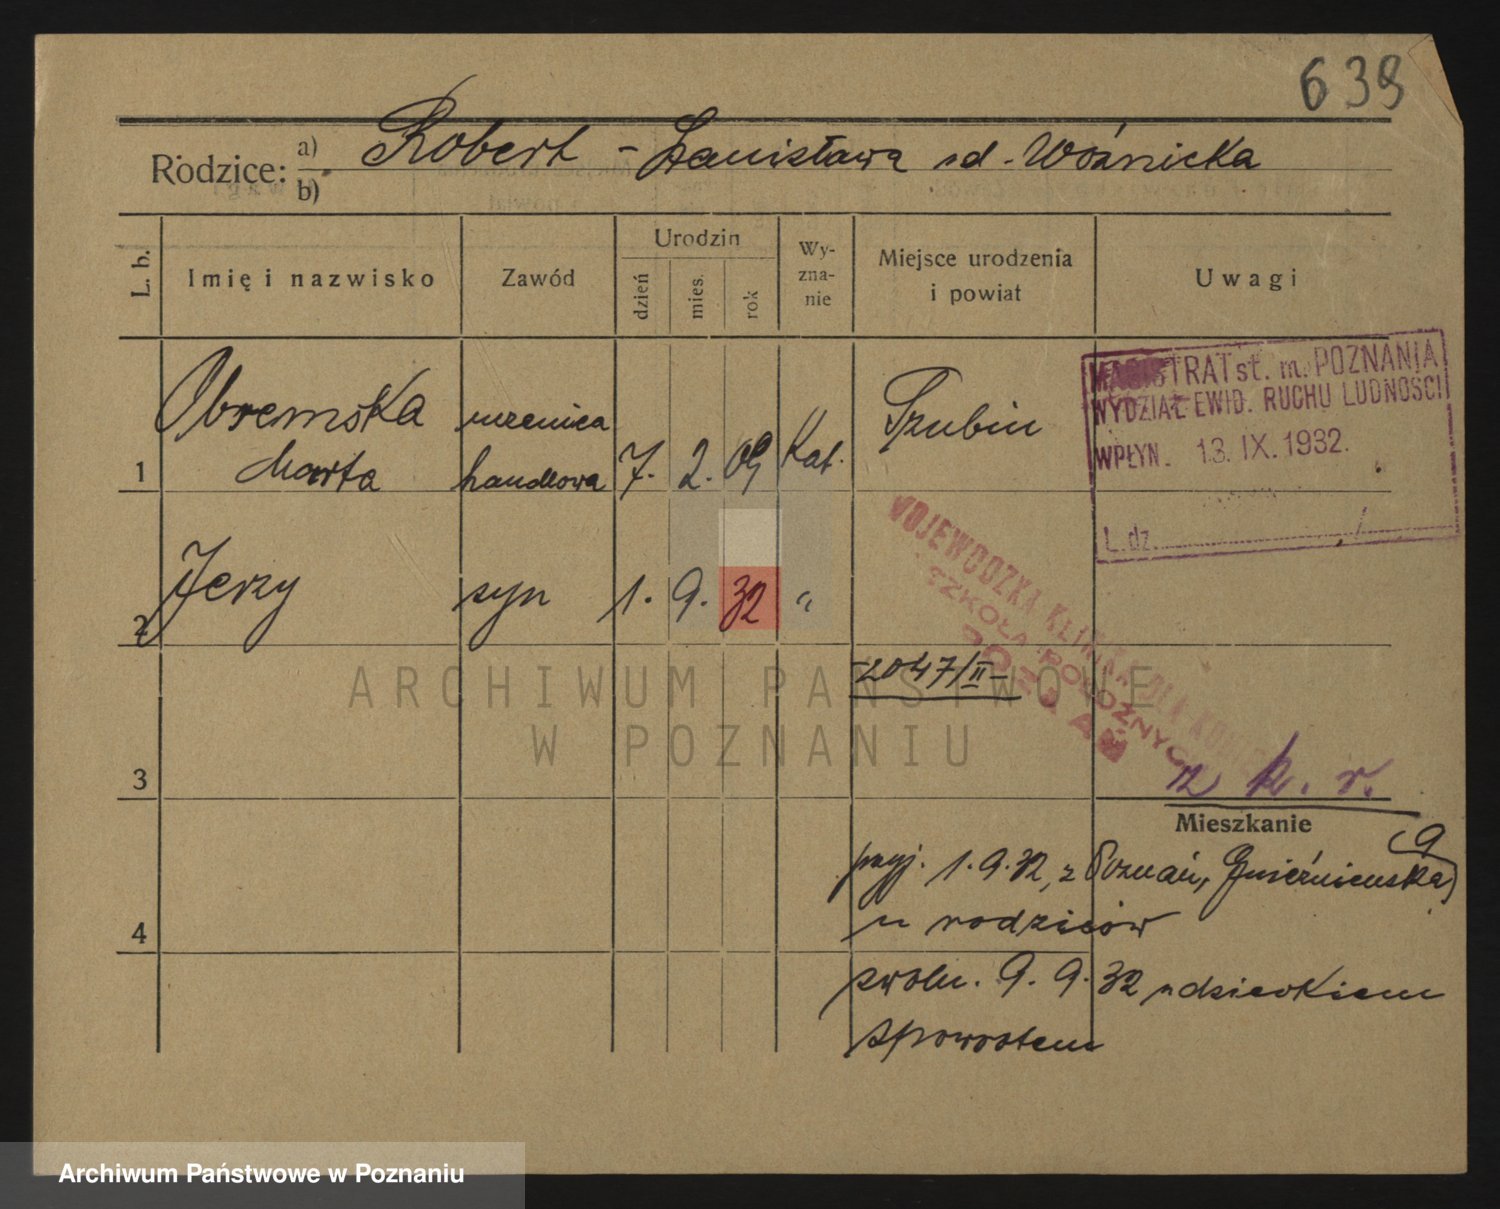 639
Rodzice: a) Robert - Stanisława sd. Woźnicka
b)
L. b. Imię i nazwisko Zawód Urodzin dzień mies. rok Wy-zna-nie Miejsce urodzenia i powiat Uwagi
MAGISTRAT st. m. POZNANIA
WYDZIAŁ EWID. RUCHU LUDNOŚCI
WPŁYN. 13. IX. 1932.
L. dz.
1 Obremska Marta uczenica handlowa 7. 2. 09 Kat. Szubin
2 Jerzy syn 1. 9. 32 "
WOJEWÓDZKA KLINIKA DLA KOBIET
SZKOŁA POŁOŻNYCH
POZNAŃ
2047/II
ARCHIWUM PAŃSTWOWE
W POZNANIU
3
z k. r.
Mieszkanie
przyj. 1.9.32, z Poznań, Gnieźnieńska 9
4 u rodziców
zwoln. 9. 9. 32 z dzieckiem
zpowrotem
Archiwum Państwowe w Poznaniu